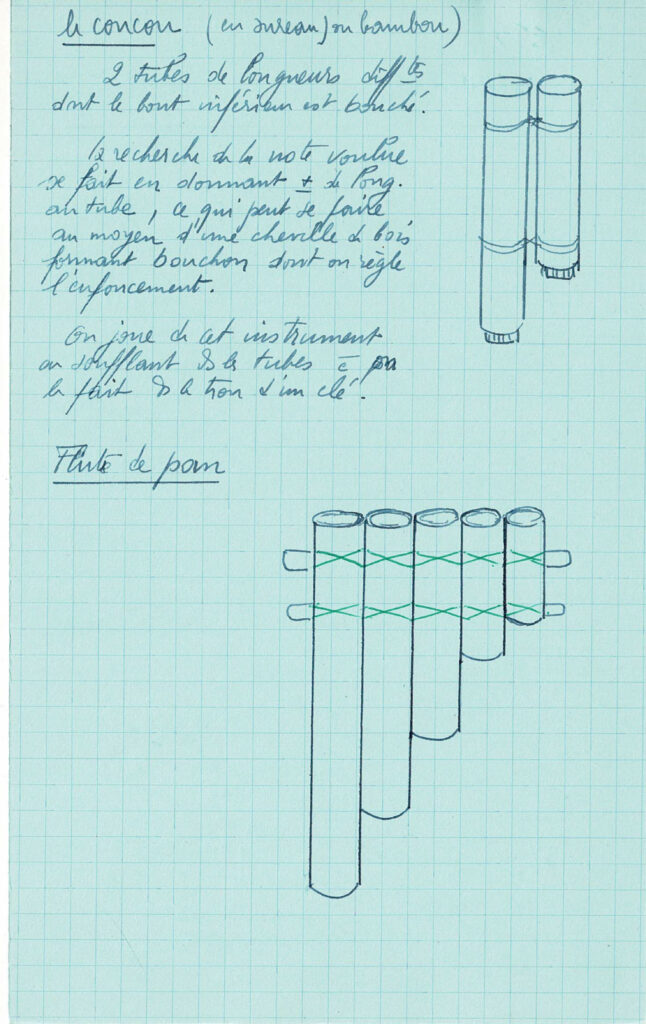 le coucou (en sureau) ou bambou)
2 tubes de longueurs difftes
dont le bout inférieur est bouché.
La recherche de la note voulue
se fait en donnant ± de long.
au tube, ce qui peut se faire
au moyen d'une cheville de bois
formant bouchon dont on règle
l'enfoncement.
On joue de cet instrument
en soufflant ds les tubes c̄ on
le fait ds le trou d'un clé.
Flute de pan